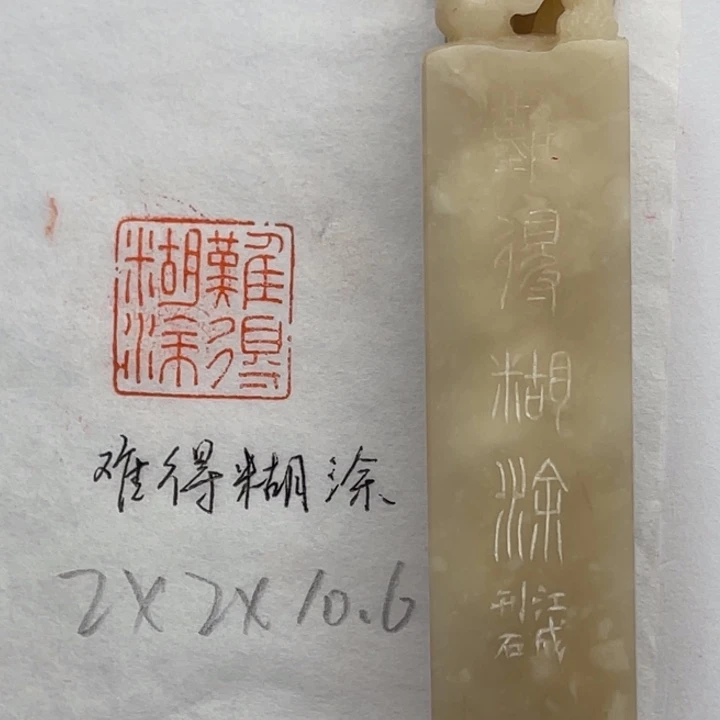 難得
糊涂
难得糊涂
2X2X10.6
難得糊涂
江成
刊石